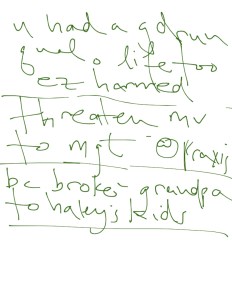 u had a gd run
qual o life too
ez harmed
threaten mv
to mgt praxis
bc broke grandpa
to haley's kids